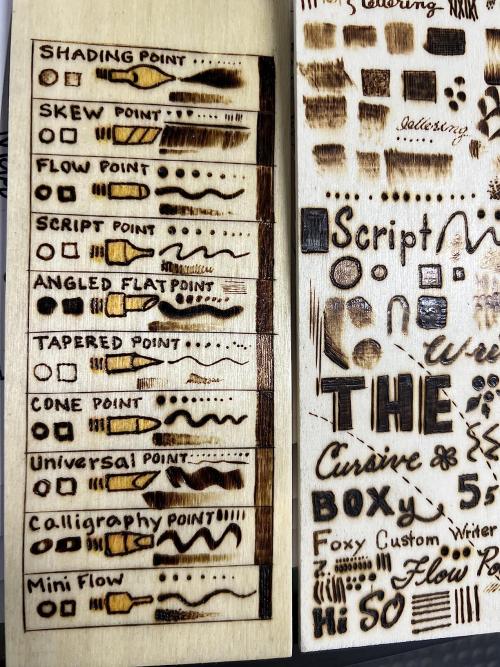 SHADING POINT
SKEW POINT
FLOW POINT
SCRIPT POINT
ANGLED FLAT POINT
TAPERED POINT
CONE POINT
Universal POINT
Calligraphy POINT
Mini Flow
lettering
lettering
Script
THE
Cursive
BOXy
Foxy Custom Writer
Flow
Hi SO